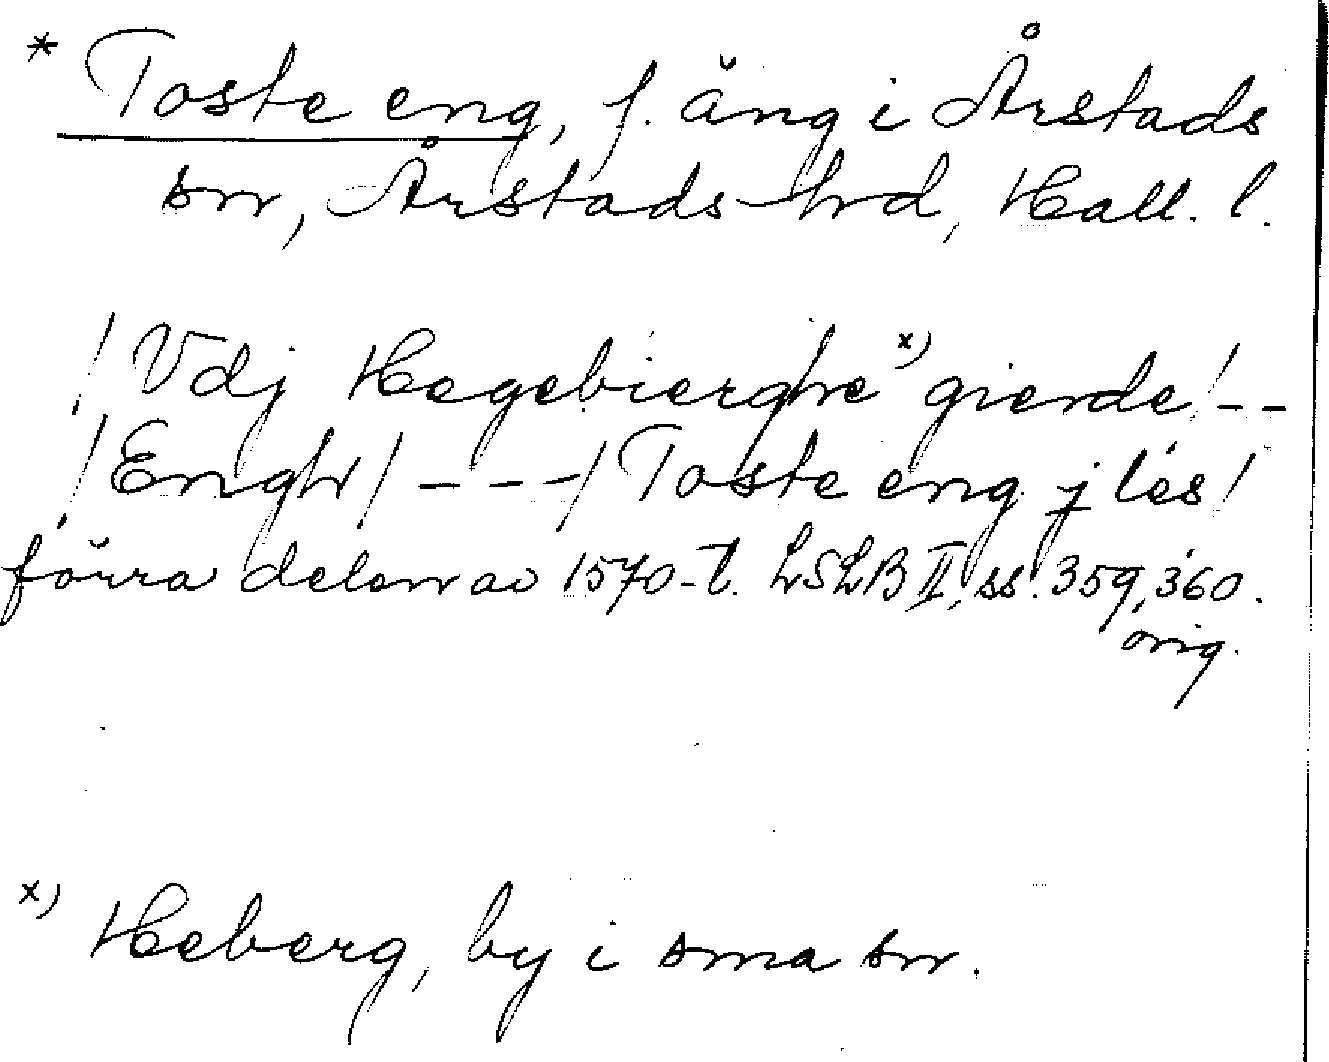 * Toste eng, f. äng i Årstads
sn, Årstads hd, Hall. l.
/ Vdj Hegebierghe x) gierde / - -
/ Engh / - - - / Toste eng j lés /
förra delen av 1570-t. LSLB II, ss. 359, 360.
orig.
x) Heberg, by i sma sn.